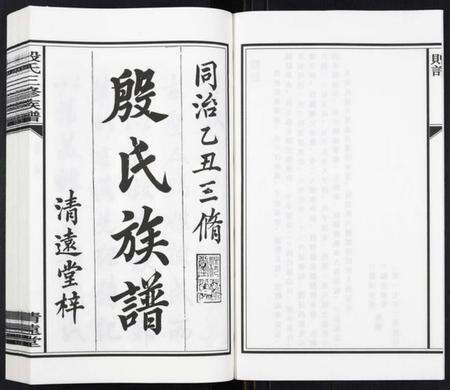 則言
同治乙丑三脩
殷氏族譜
清遠堂梓
殷氏三修族譜
清遠堂